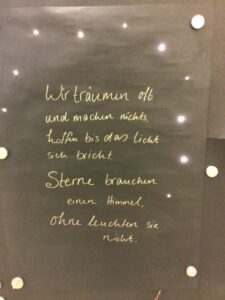 Wir träumen oft
und machen nichts,
hoffen bis das licht
sich bricht
Sterne brauchen
einen Himmel,
ohne leuchten sie
nicht.